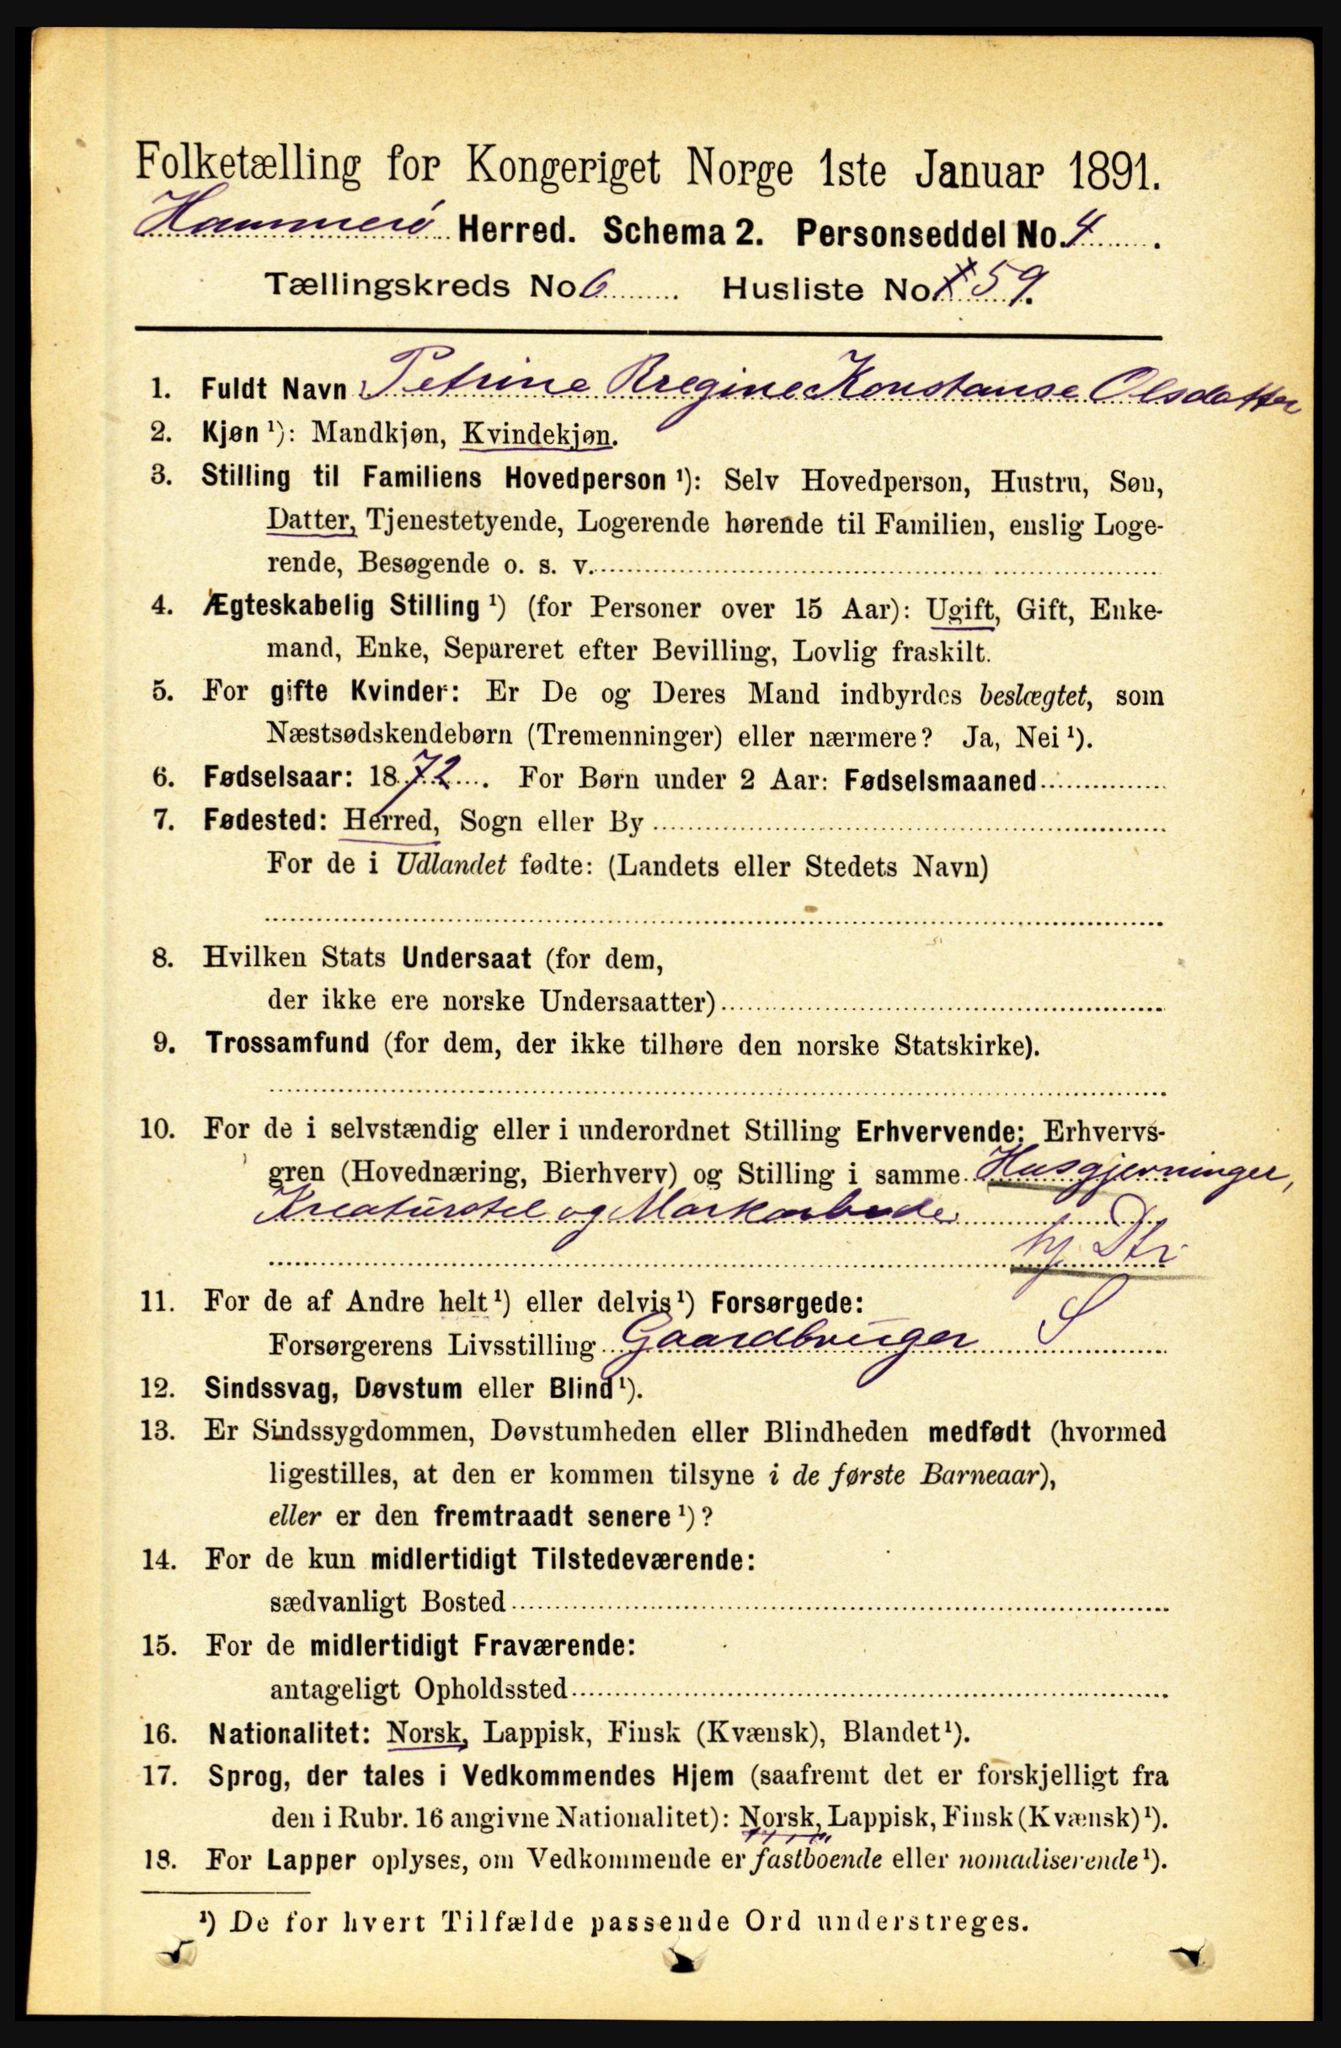 Folketælling for Kongeriget Norge 1ste Januar 1891.
Hammerø Herred. Schema 2. Personseddel No. 4.
Tællingskreds No 6. Husliste No 59.
1. Fuldt Navn Petrine Rregine Konstanse Olsdatter
2. Kjøn ¹): Mandkjøn, Kvindekjøn.
3. Stilling til Familiens Hovedperson ¹): Selv Hovedperson, Hustru, Søn,
Datter, Tjenestetyende, Logerende hørende til Familien, enslig Loge-
rende, Besøgende o. s. v.
4. Ægteskabelig Stilling ¹) (for Personer over 15 Aar): Ugift, Gift, Enke-
mand, Enke, Separeret efter Bevilling, Lovlig fraskilt.
5. For gifte Kvinder: Er De og Deres Mand indbyrdes beslægtet, som
Næstsødskendebørn (Tremenninger) eller nærmere? Ja, Nei ¹).
6. Fødselsaar: 1872. For Børn under 2 Aar: Fødselsmaaned
7. Fødested: Herred, Sogn eller By
For de i Udlandet fødte: (Landets eller Stedets Navn)
8. Hvilken Stats Undersaat (for dem,
der ikke ere norske Undersaatter)
9. Trossamfund (for dem, der ikke tilhøre den norske Statskirke).
10. For de i selvstændig eller i underordnet Stilling Erhvervende: Erhvervs-
gren (Hovednæring, Bierhverv) og Stilling i samme Husgjerninger,
Kreaturstel og Markarbeide.
hj. Dtr
11. For de af Andre helt ¹) eller delvis ¹) Forsørgede:
Forsørgerens Livsstilling Gaardbruger S
12. Sindssvag, Døvstum eller Blind ¹).
13. Er Sindssygdommen, Døvstumheden eller Blindheden medfødt (hvormed
ligestilles, at den er kommen tilsyne i de første Barneaar),
eller er den fremtraadt senere ¹)?
14. For de kun midlertidigt Tilstedeværende:
sædvanligt Bosted
15. For de midlertidigt Fraværende:
antageligt Opholdssted
16. Nationalitet: Norsk, Lappisk, Finsk (Kvænsk), Blandet ¹).
17. Sprog, der tales i Vedkommendes Hjem (saafremt det er forskjelligt fra
den i Rubr. 16 angivne Nationalitet): Norsk, Lappisk, Finsk (Kvænsk) ¹).
18. For Lapper oplyses, om Vedkommende er fastboende eller nomadiserende ¹).
¹) De for hvert Tilfælde passende Ord understreges.